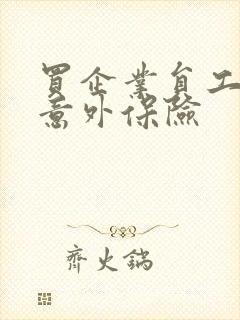 買企業員工
意外保險
齊火鍋